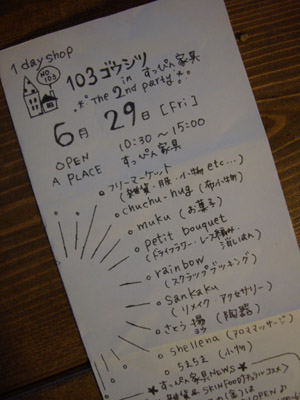 1 day shop
NO. 103
103ゴウシツ
in すっぴん家具
The 2nd party
6月 29日 [Fri]
OPEN 10:30〜15:00
A PLACE すっぴん家具
フリーマーケット
(雑貨・服・小物 etc...)
chuchu-hug (布小物)
muku (お菓子)
petit bouquet
(ドライフラワー・レース編み
rainbow
(スクラップブッキング)
Sankaku
(リメイク アクセサリー)
さとう陽 (陶器)
shellena (アロママッサージ)
ちえちえ (小物)
すっぴん家具NEWS
雑貨店 SKINFOOD
OPEN♪